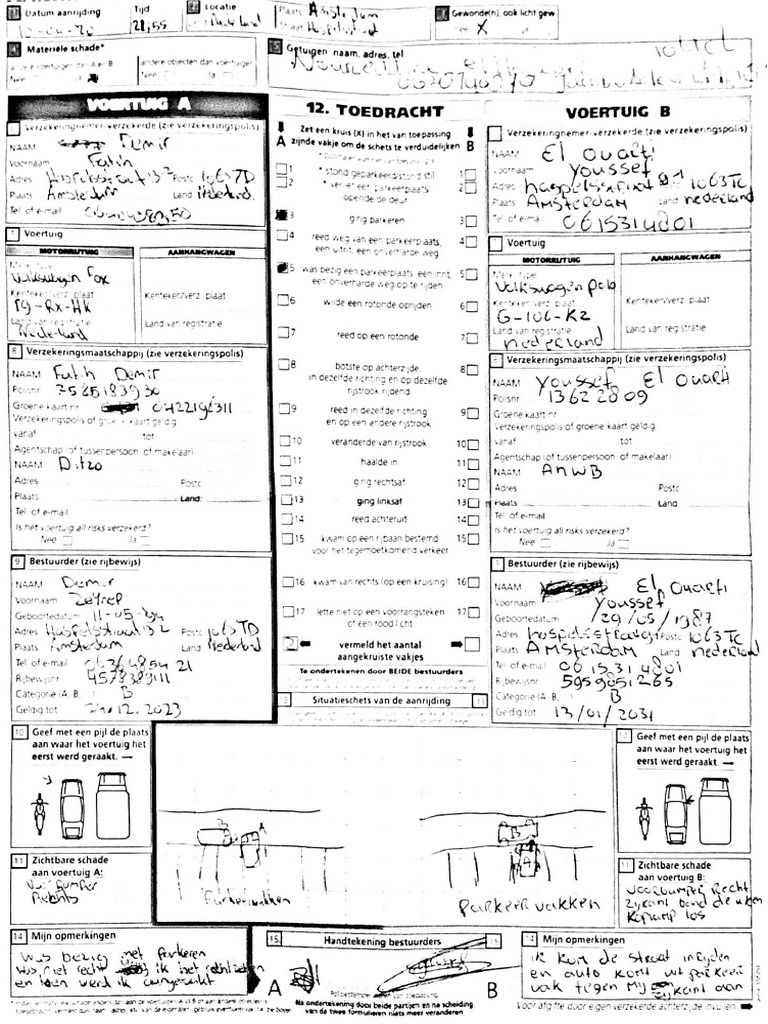 1 Datum aanrijding Tijd 2 Locatie Plaats Amsterdam 3 Gewonde(n), ook licht gew
21,55 Nederland nee X
4 Materiële schade* 5 Getuigen naam, adres, tel
andere voertuigen dan A en B andere objecten dan voertuigen
Nee Ja Nee Ja
VOERTUIG A
Verzekeringnemer-verzekerde (zie verzekeringspolis)
NAAM Demir
Voornaam Fatih
Adres Postc 1063TD
Plaats Amsterdam Land Nederland
Tel of e-mail
7 Voertuig
MOTORRIJTUIG AANHANGWAGEN
Merk, type
Volkswagen Fox
Kenteken/verz. plaat Kenteken/verz. plaat
19-RX-HK
Land van registratie Land van registratie
Nederland
8 Verzekeringsmaatschappij (zie verzekeringspolis)
NAAM Fatih Demir
Polisnr 7585183930
Groene kaart nr 0422196311
Verzekeringspolis of groene kaart geldig
vanaf tot
Agentschap (of tussenpersoon of makelaar)
NAAM Ditzo
Adres Postc
Plaats Land
Tel of e-mail
Is het voertuig all risks verzekerd?
Nee Ja
9 Bestuurder (zie rijbewijs)
NAAM Demir
Voornaam
Geboortedatum 11-05-
Adres Postc 1063TD
Plaats Amsterdam Land Nederland
Tel of e-mail 0636485421
Rijbewijsnr 4578389111
Categorie (A, B, ) B
Geldig tot 12.2023
10 Geef met een pijl de plaats
aan waar het voertuig het
eerst werd geraakt. →
11 Zichtbare schade
aan voertuig A:
bumper
Rechts
14 Mijn opmerkingen
Was bezig met Parkeren
Was niet recht ik het rechtzetten
en toen werd ik aangereden
12. TOEDRACHT
A Zet een kruis (X) in het van toepassing B
zijnde vakje om de schets te verduidelijken
1 * stond geparkeerd/stond stil 1
2 * verliet een parkeerplaats/ 2
opende de deur
3 ging parkeren 3
4 reed weg van een parkeerplaats, 4
een uitrit, een onverharde weg
5 was bezig een parkeerplaats, een inrit, 5
een onverharde weg op te rijden
6 wilde een rotonde oprijden 6
7 reed op een rotonde 7
8 botste op achterzijde, 8
in dezelfde richting en op dezelfde
rijstrook rijdend
9 reed in dezelfde richting 9
en op een andere rijstrook
10 veranderde van rijstrook 10
11 haalde in 11
12 ging rechtsaf 12
13 ging linksaf 13
14 reed achteruit 14
15 kwam op een rijbaan bestemd 15
voor het tegemoetkomend verkeer
16 kwam van rechts (op een kruising) 16
17 lette niet op een voorrangsteken 17
of een rood licht
2 ← vermeld het aantal →
aangekruiste vakjes
Te ondertekenen door BEIDE bestuurders
13 Situatieschets van de aanrijding 13
B A
B
A
Parkeervakken
Parkeer vakken
15 Handtekening bestuurders 15
A B
Na ondertekening door beide partijen en na scheiding
van de twee formulieren niets meer veranderen
VOERTUIG B
Verzekeringnemer-verzekerde (zie verzekeringspolis)
NAAM El Ouarti
Voornaam Youssef
Adres Postc 1063Tc
Plaats AMSTERDAM Land nederland
Tel of e-mail 0615314801
Voertuig
MOTORRIJTUIG AANHANGWAGEN
Merk, type
Volkswagen polo
Kenteken/verz. plaat Kenteken/verz. plaat
G-106-KZ
Land van registratie Land van registratie
nederland
Verzekeringsmaatschappij (zie verzekeringspolis)
NAAM Youssef El Ouarti
Polisnr 13622809
Groene kaart nr
Verzekeringspolis of groene kaart geldig
vanaf tot
Agentschap (of tussenpersoon of makelaar)
NAAM ANWB
Adres Postc
Plaats Land
Tel of e-mail
Is het voertuig all risks verzekerd?
Nee Ja
Bestuurder (zie rijbewijs)
NAAM El Ouarti
Voornaam Youssef
Geboortedatum 29/05/1987
Adres Postc 1063Tc
Plaats AMSTERDAM Land nederland
Tel of e-mail 0615314801
Rijbewijsnr 5959851265
Categorie (A, B, ) B
Geldig tot 13/01/2031
Geef met een pijl de plaats
aan waar het voertuig het
eerst werd geraakt. →
11 Zichtbare schade
aan voertuig B:
Voorbumper Recht
Zijkant
Koplamp los
14 Mijn opmerkingen
ik kom de straat inrijden
en auto komt uit parkeer
vak tegen Mij zijkant aan
Voor afgifte door eigen verzekerde achterzijde invullen →